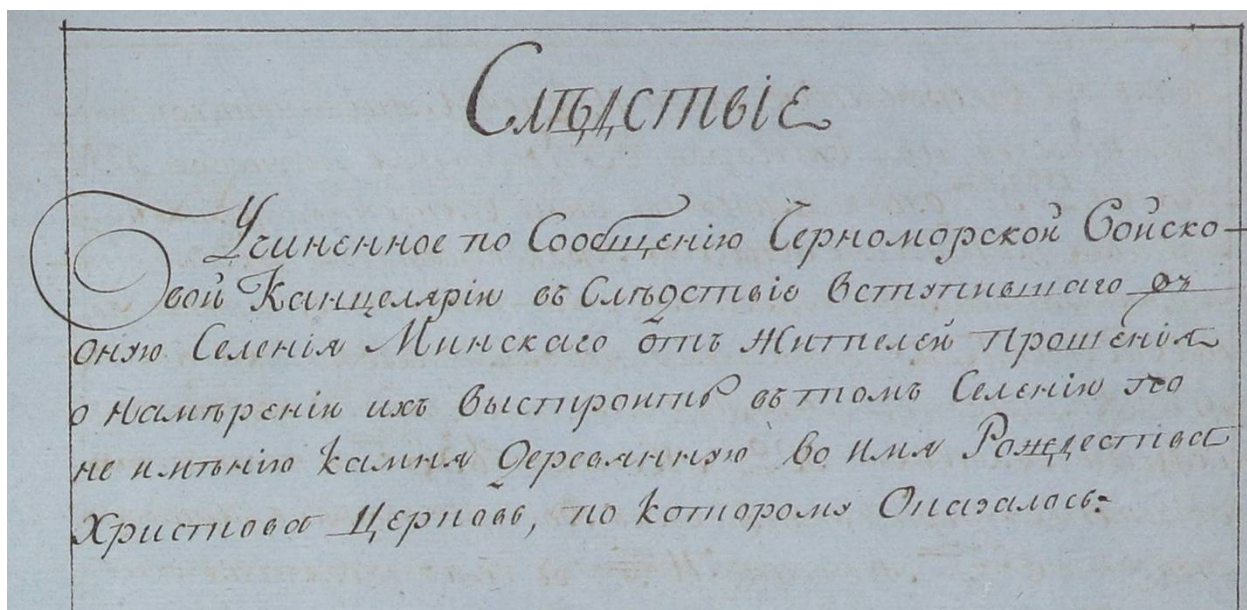 Слѣдствіе
Учиненное по Сообщенію Черноморской Войско-
вой Канцеляріи въ Слѣдствіе вступившаго въ
оную Селенія Минскаго отъ жителей прошенія
о намѣреніи ихъ выстроить въ томъ Селенію по
не имѣнію камня деревянную во имя Рождества
Христова Церковь, по которому Оказалось: